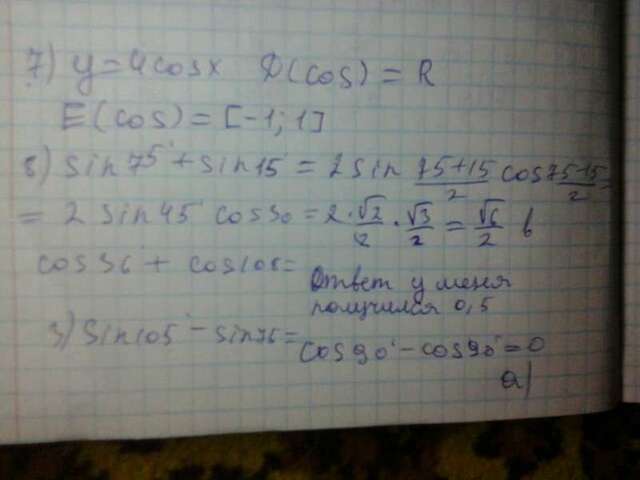 7) y=4cosx D(cos) = R
E(cos) = [-1; 1]
8) sin75° + sin15° = 2 sin (75+15)/2 cos (75-15)/2 =
= 2 sin45 cos30 = 2·√2/2 · √3/2 = √6/2 в
cos36° + cos108 =
Ответ у меня
получился 0,5
3) sin105° - sin75 =
cos90° - cos90° = 0
а)